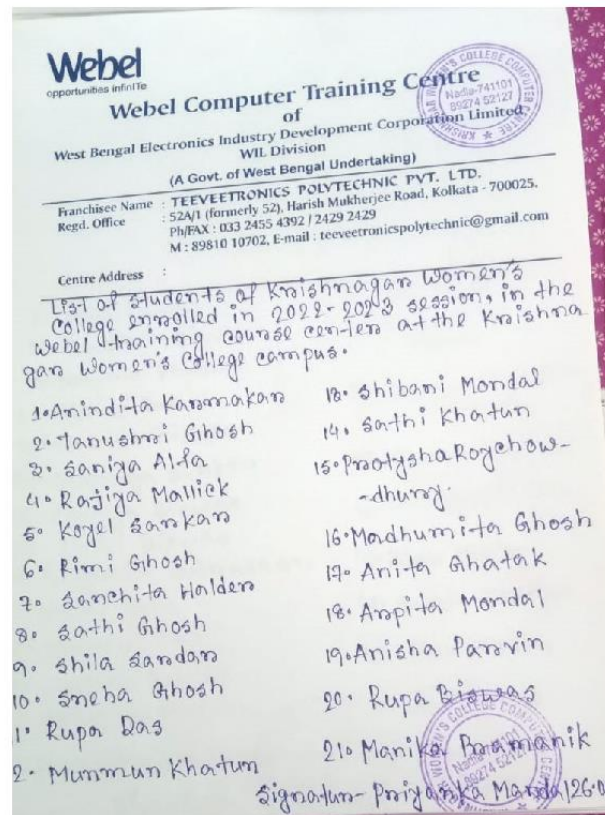 Webel
opportunities infinITe
Webel Computer Training Centre
of
West Bengal Electronics Industry Development Corporation Limited
WIL Division
(A Govt. of West Bengal Undertaking)
Franchisee Name : TEEVEETRONICS POLYTECHNIC PVT. LTD.
Regd. Office : 52A/1 (formerly 52), Harish Mukherjee Road, Kolkata - 700025.
Ph/FAX : 033 2455 4392 / 2429 2429
M : 89810 10702, E-mail : teeveetronicspolytechnic@gmail.com
Centre Address :
List of students of Krishnagar Women's
College enrolled in 2022-2023 session, in the
Webel training course center at the Krishna
gar Women's College campus.
1. Anindita Karmakar
2. Tanushri Ghosh
3. Saniya Alfa
4. Rajiya Mallick
5. Koyel Sarkar
6. Rimi Ghosh
7. Sanchita Halder
8. Sathi Ghosh
9. Shila Sardar
10. Sneha Ghosh
1. Rupa Das
2. Munmun Khatun
13. Shibani Mondal
14. Sathi Khatun
15. Protysha Roychow-
-dhury.
16. Madhumita Ghosh
17. Anita Ghatak
18. Arpita Mondal
19. Anisha Parvin
20. Rupa Biswas
21. Manika Pramanik
Signatur- Priyanka Manda
WOMEN'S COLLEGE COMPUTER
Nadia-741101
89274 52127